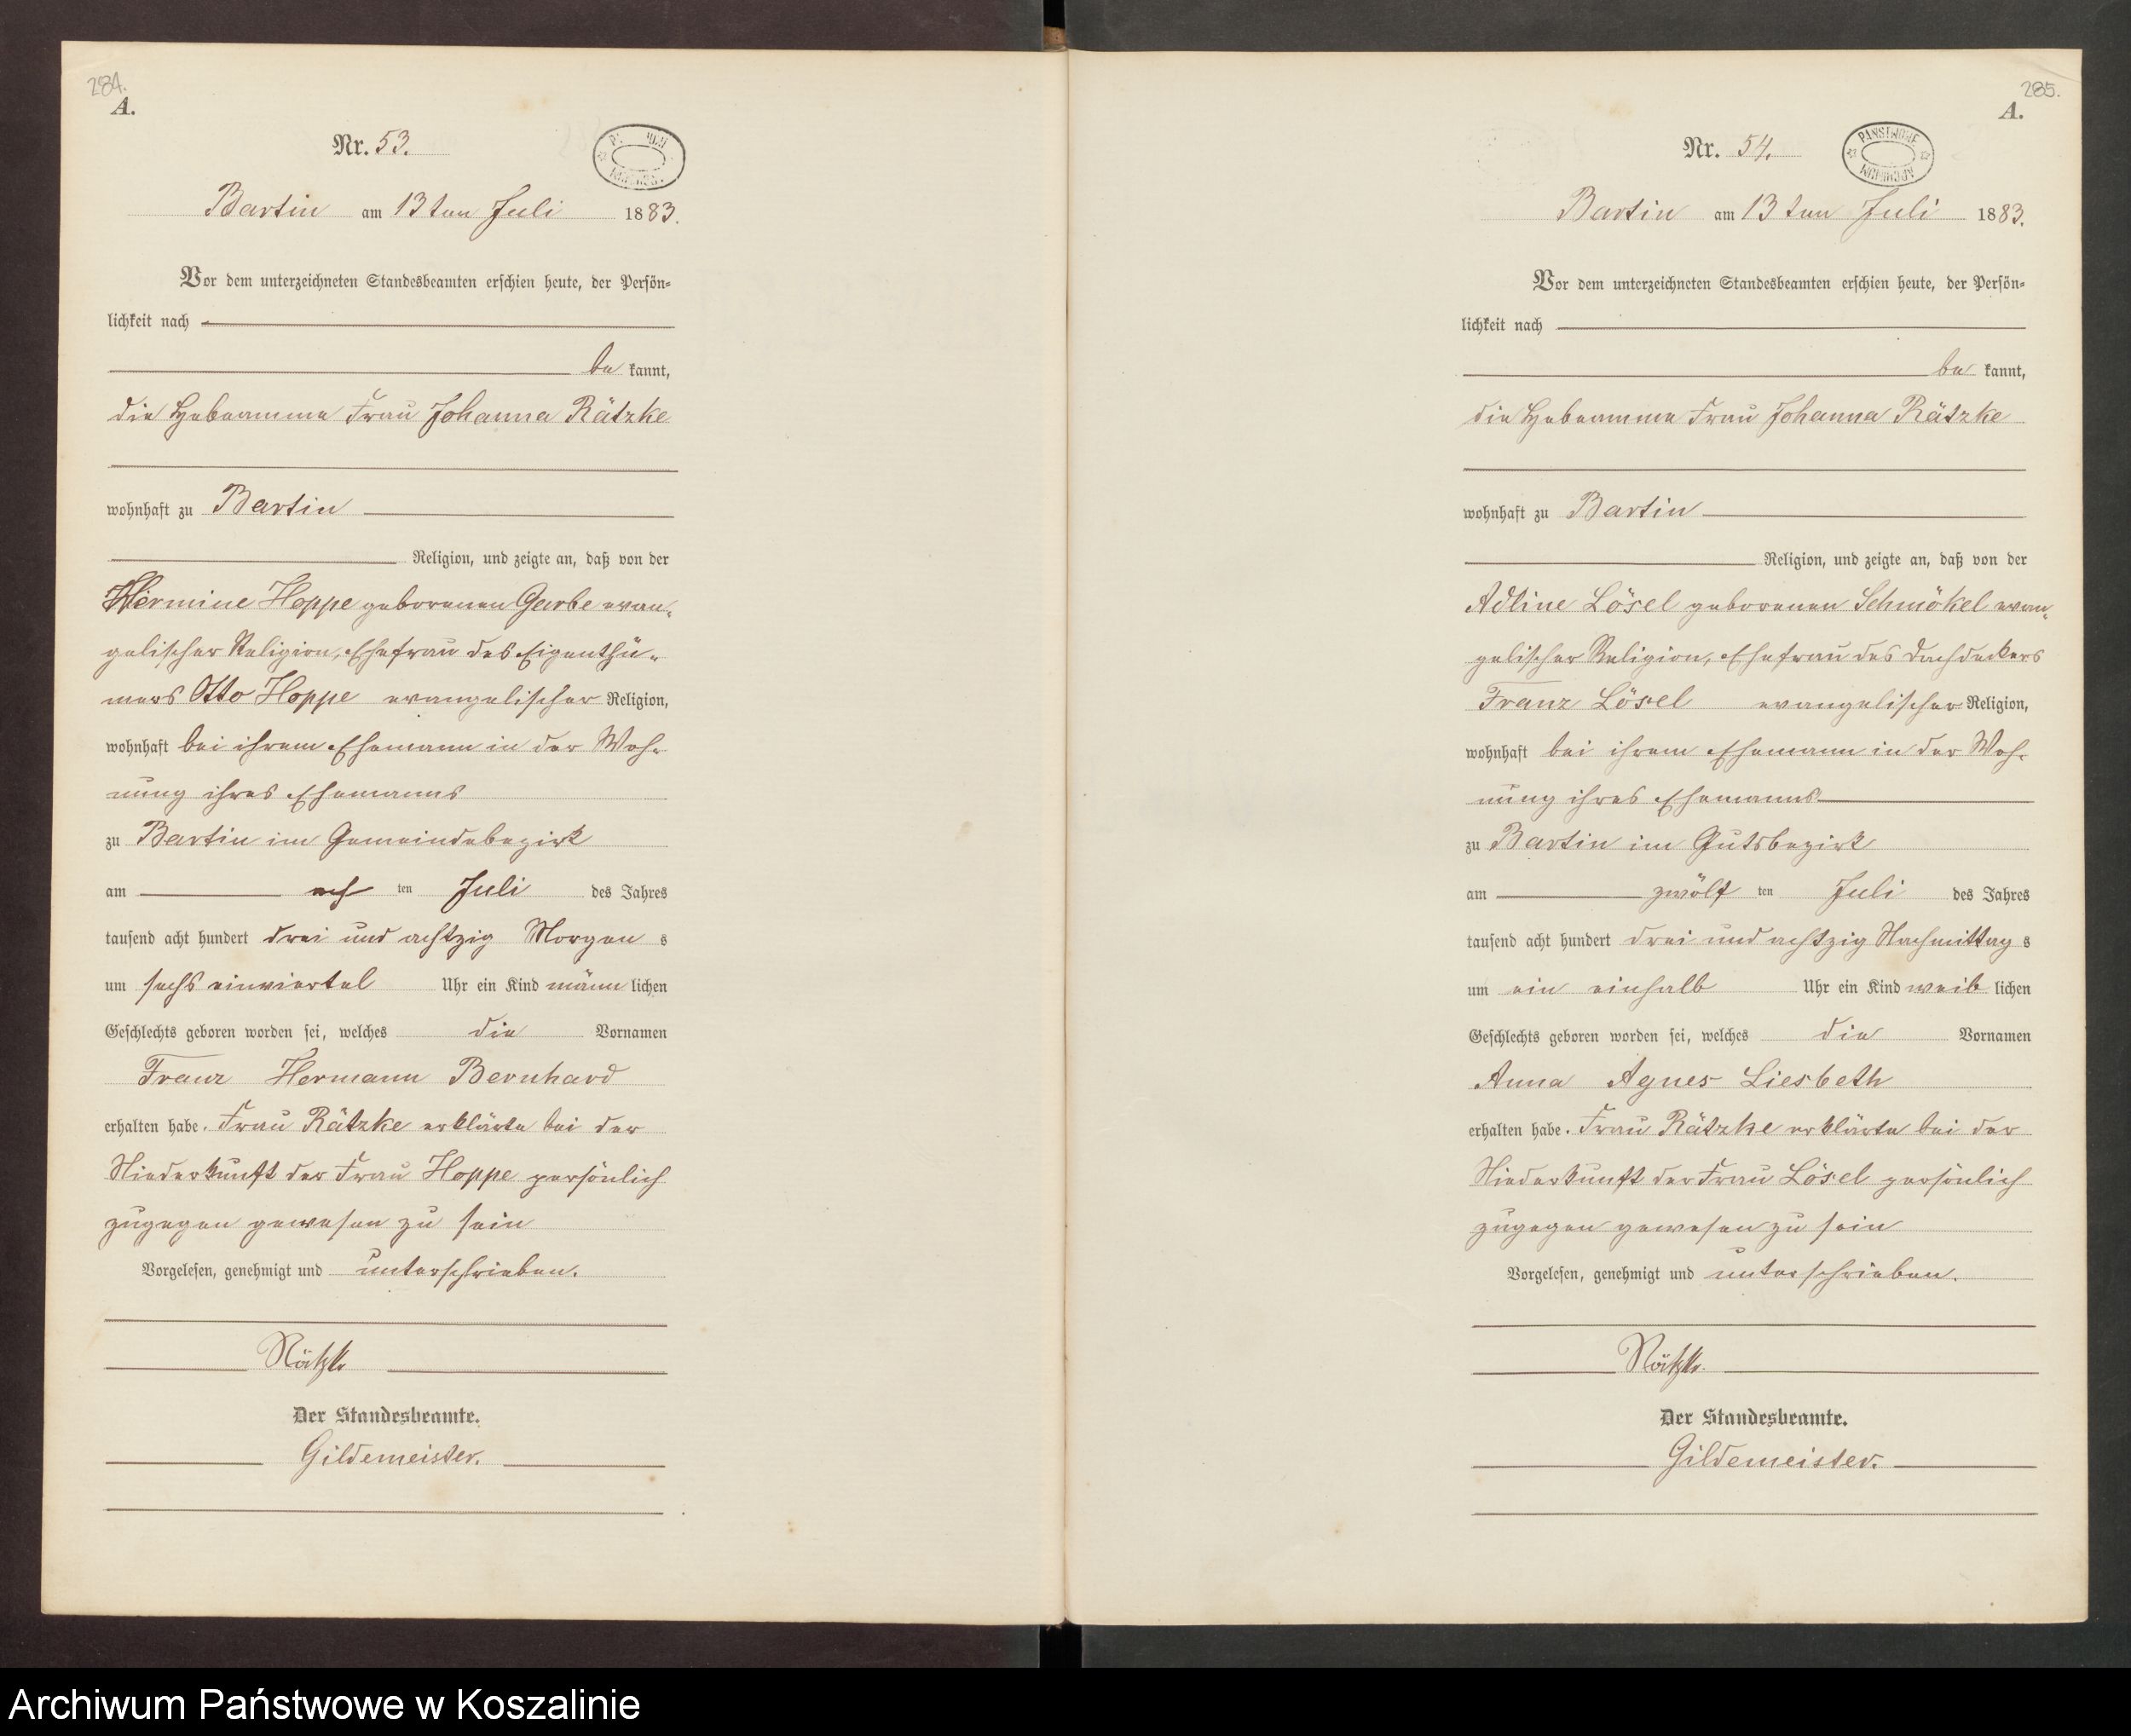 284.
A.
Nr. 53.
Bartin am 13ten Juli 1883.
Vor dem unterzeichneten Standesbeamten erschien heute, der Persön-
lichkeit nach
be kannt,
die Hebeamme Frau Johanna Rätzke
wohnhaft zu Bartin
Religion, und zeigte an, daß von der
Hermine Hoppe geborenen Garbe evan-
gelischer Religion, Ehefrau des Eigenthü-
mers Otto Hoppe evangelischer Religion,
wohnhaft bei ihrem Ehemann in der Woh-
nung ihres Ehemanns
zu Bartin im Gemeindebezirk
am ten Juli des Jahres
tausend acht hundert drei und achtzig Morgen s
um sechs einviertel Uhr ein Kind männ lichen
Geschlechts geboren worden sei, welches die Vornamen
Franz Hermann Bernhard
erhalten habe. Frau Rätzke erklärte bei der
Niederkunft der Frau Hoppe persönlich
zugegen gewesen zu sein
Vorgelesen, genehmigt und unterschrieben.
Rätzke
Der Standesbeamte.
Gildemeister.
285.
A.
Nr. 54.
PANSTWOWE
ARCHIWUM
Bartin am 13ten Juli 1883.
Vor dem unterzeichneten Standesbeamten erschien heute, der Persön-
lichkeit nach
be kannt,
die Hebeamme Frau Johanna Rätzke
wohnhaft zu Bartin
Religion, und zeigte an, daß von der
Adline Lösel geborenen Schmökel evan-
gelischer Religion, Ehefrau des Dachdeckers
Franz Lösel evangelischer Religion,
wohnhaft bei ihrem Ehemann in der Woh-
nung ihres Ehemanns
zu Bartin im Gutsbezirk
am zwölf ten Juli des Jahres
tausend acht hundert drei und achtzig Nachmittag s
um ein einhalb Uhr ein Kind weib lichen
Geschlechts geboren worden sei, welches die Vornamen
Anna Agnes Liesbeth
erhalten habe. Frau Rätzke erklärte bei der
Niederkunft der Frau Lösel persönlich
zugegen gewesen zu sein
Vorgelesen, genehmigt und unterschrieben.
Rätzke.
Der Standesbeamte.
Gildemeister.
Archiwum Państwowe w Koszalinie